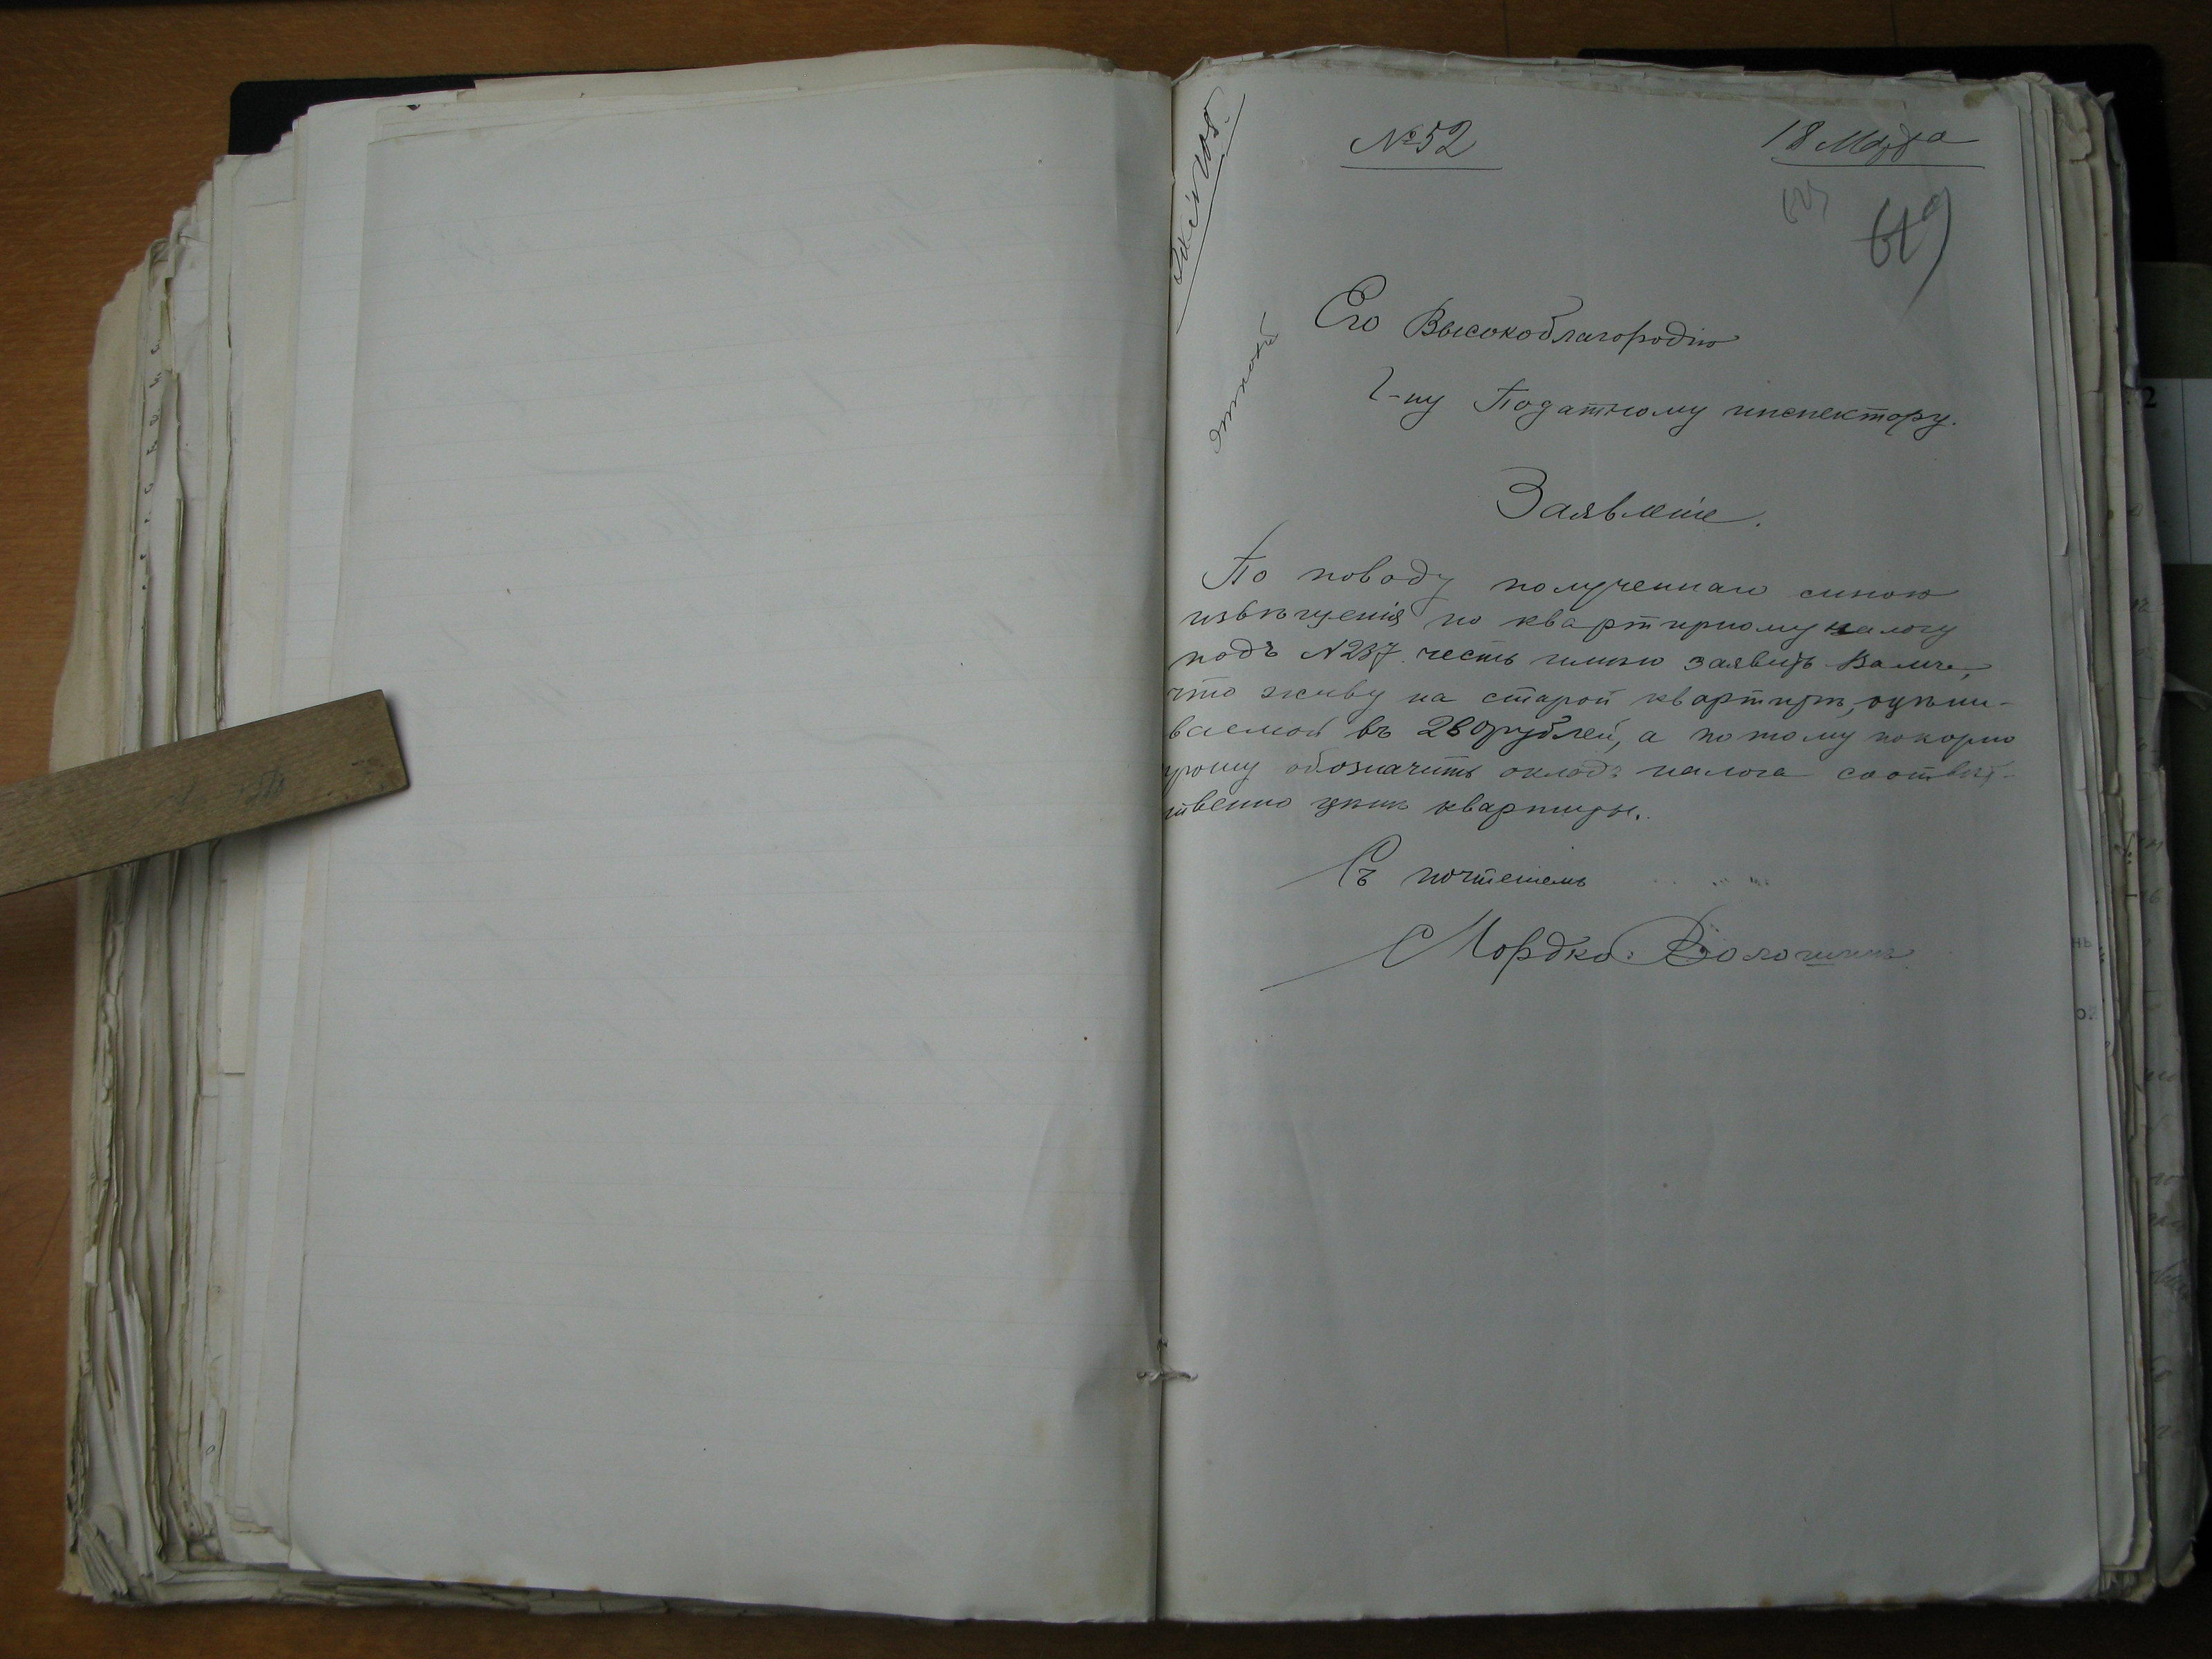 № 52
18 Марта
619
Его Высокоблагородію
1-му Податному инспектору.
Заявленіе.
По поводу полученнаго мною
извѣщенія по квартирному налогу
подъ №237 честь имѣю заявить Вамъ,
что живу на старой квартирѣ, оцѣни-
ваемой въ 280 рублей, а потому покорно
прошу обозначить окладъ налога соотвѣт-
ственно цѣнѣ квартиры.
Съ почтеніемъ
Мордко Волошинъ